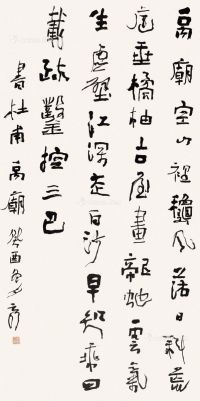 禹廟空山裡龝風落日斜荒
庭垂橘柚古屋畫龍蛇雲氣
生虛壁江深走白沙早知乘四
載疏鑿控三巴
書杜甫禹廟 癸酉冬